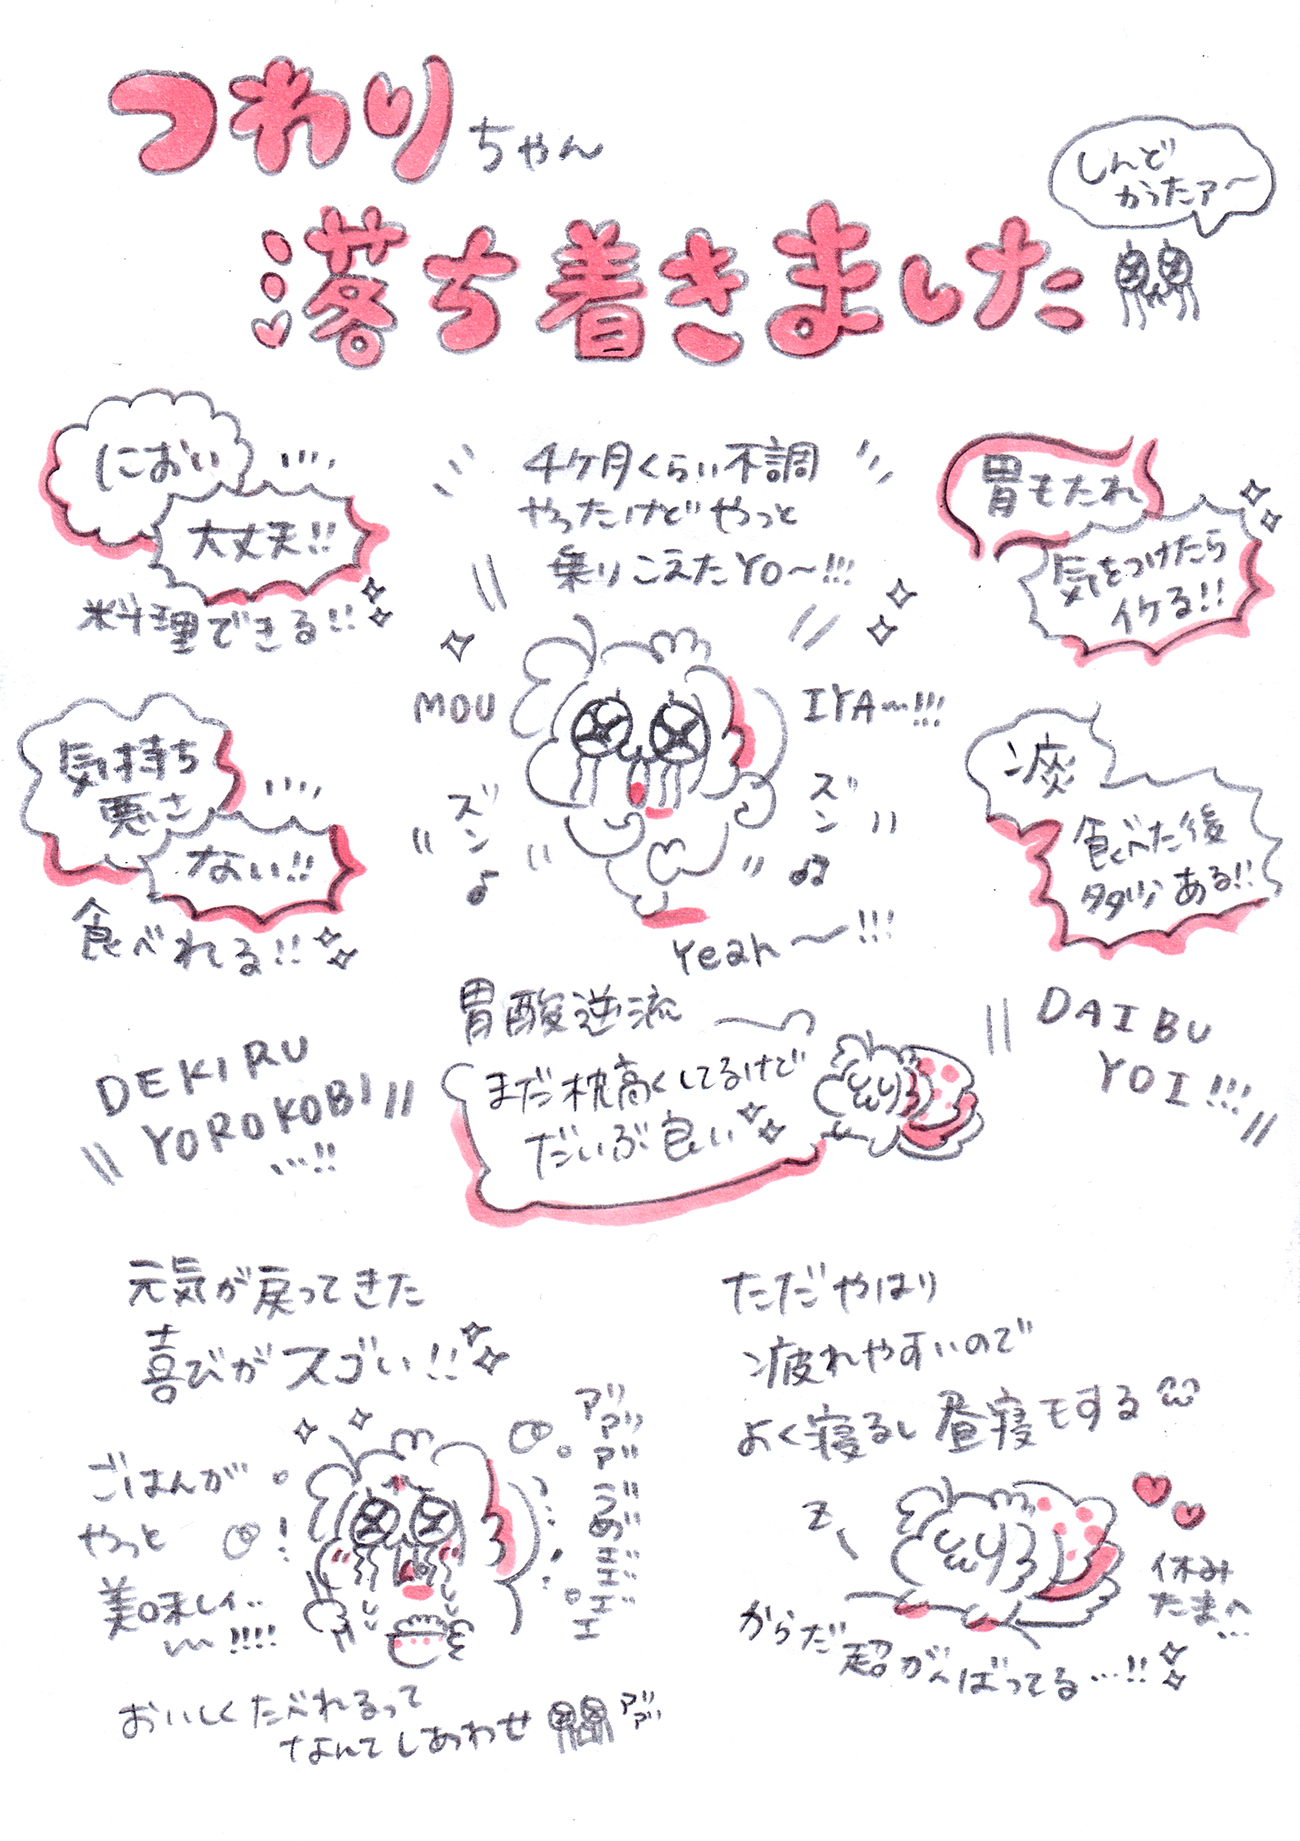 つわりちゃん
落ち着きました
しんど
かったァ〜
におい
大丈夫!!
料理できる!!
4ヶ月くらい不調
やったけどやっと
乗りこえたYO〜!!!
胃もたれ
気をつけたら
イケる!!
MOU
IYA〜!!!
気持ち
悪さ
ない!!
食べれる!!
ズン♪
ズン♫
Yeah〜!!!
痰
食べた後
タタリンある!!
胃酸逆流
まだ枕高くしてるけど
だいぶ良い
DEKIRU
YOROKOBI
…!!
DAIBU
YOI!!!
元気が戻ってきた
喜びがスゴい!!
ごはんが
やっと
美味しィ…
〜!!!!
おいしくたべれるって
なんてしあわせ
アッ
アッ
ただやはり
疲れやすいので
よく寝るし昼寝もする
z
休み
たまへ
…
からだ超がんばってる…!!